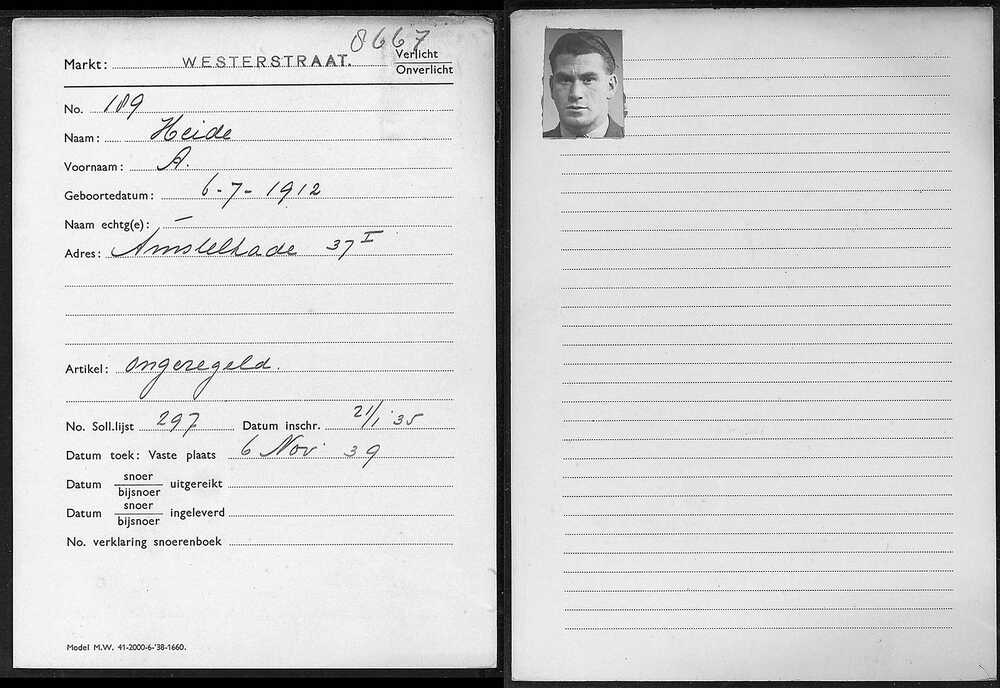 8667
Markt: WESTERSTRAAT. Verlicht
Onverlicht
No. 189
Naam: Heide
Voornaam: A.
Geboortedatum: 6-7-1912
Naam echtg(e): —
Adres: Amstelkade 37 I
Artikel: ongeregeld.
No. Soll.lijst 297 Datum inschr. 21/1 '35
Datum toek: Vaste plaats 6 Nov. 39
Datum snoer/bijsnoer uitgereikt
Datum snoer/bijsnoer ingeleverd
No. verklaring snoerenboek
Model M.W. 41-2000-6-'38-1660.